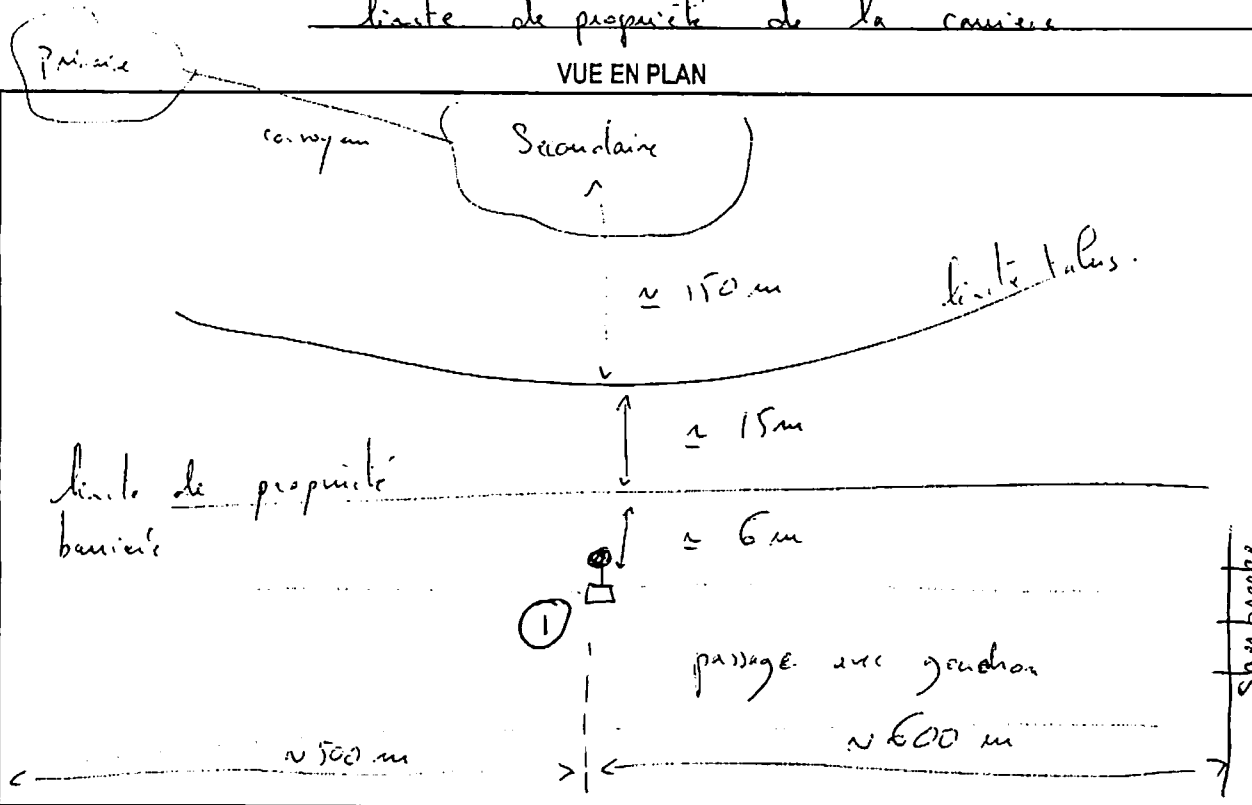 limite de propriété de la carrière
VUE EN PLAN
Primaire
convoyeur
Secondaire
≃ 150 m
limite talus.
≃ 15 m
limite de propriété
barrière
≃ 6 m
1
passage avec goudron
~ 500 m
~ 600 m